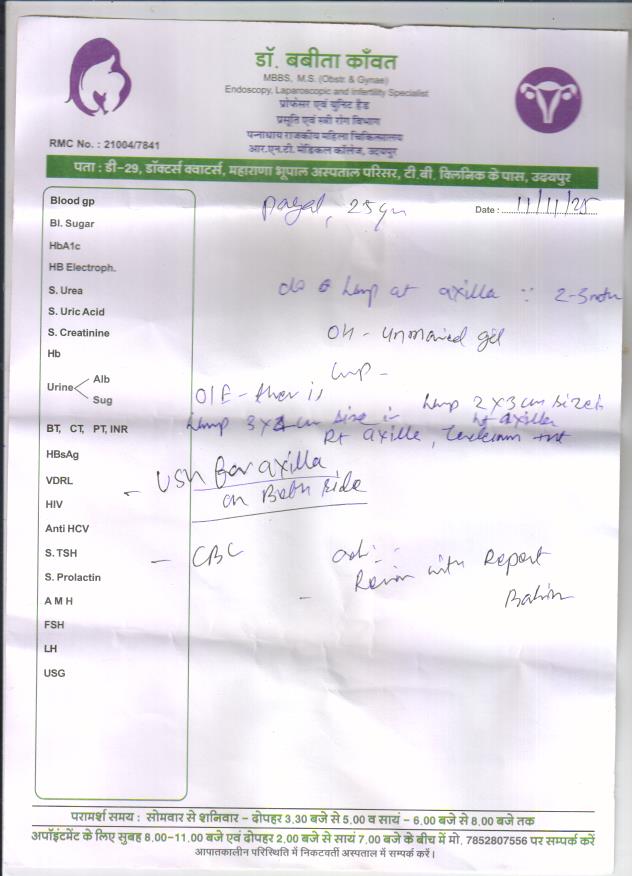 डॉ. बबीता काँवत
MBBS, M.S. (Obstr. & Gynae)
Endoscopy, Laparoscopic and Infertility Specialist
प्रोफेसर एवं यूनिट हैड
प्रसूति एवं स्त्री रोग विभाग
पन्नाधाय राजकीय महिला चिकित्सालय
आर.एन.टी. मेडिकल कॉलेज, उदयपुर
RMC No. : 21004/7841
पता : डी-29, डॉक्टर्स क्वाटर्स, महाराणा भूपाल अस्पताल परिसर, टी.बी. क्लिनिक के पास, उदयपुर
Payal, 25 yr
Date : 11/11/25
Blood gp
Bl. Sugar
HbA1c
HB Electroph.
S. Urea
S. Uric Acid
S. Creatinine
Hb
Urine Alb
Sug
BT, CT, PT, INR
HBsAg
VDRL
HIV
Anti HCV
S. TSH
S. Prolactin
A M H
FSH
LH
USG
lump at axilla 2-3
OH - unmarried girl
Lmp -
O/E - there is
lump 2x3 cm size
axilla
lump 3x cm size in
Rt axilla,
- USG for axilla
on Both side
- CBC
Adv :
Review with Report
परामर्श समय : सोमवार से शनिवार - दोपहर 3.30 बजे से 5.00 व सायं - 6.00 बजे से 8.00 बजे तक
अपॉइंटमेंट के लिए सुबह 8.00-11.00 बजे एवं दोपहर 2.00 बजे से सायं 7.00 बजे के बीच में मो. 7852807556 पर सम्पर्क करें
आपातकालीन परिस्थिति में निकटवर्ती अस्पताल में सम्पर्क करें।